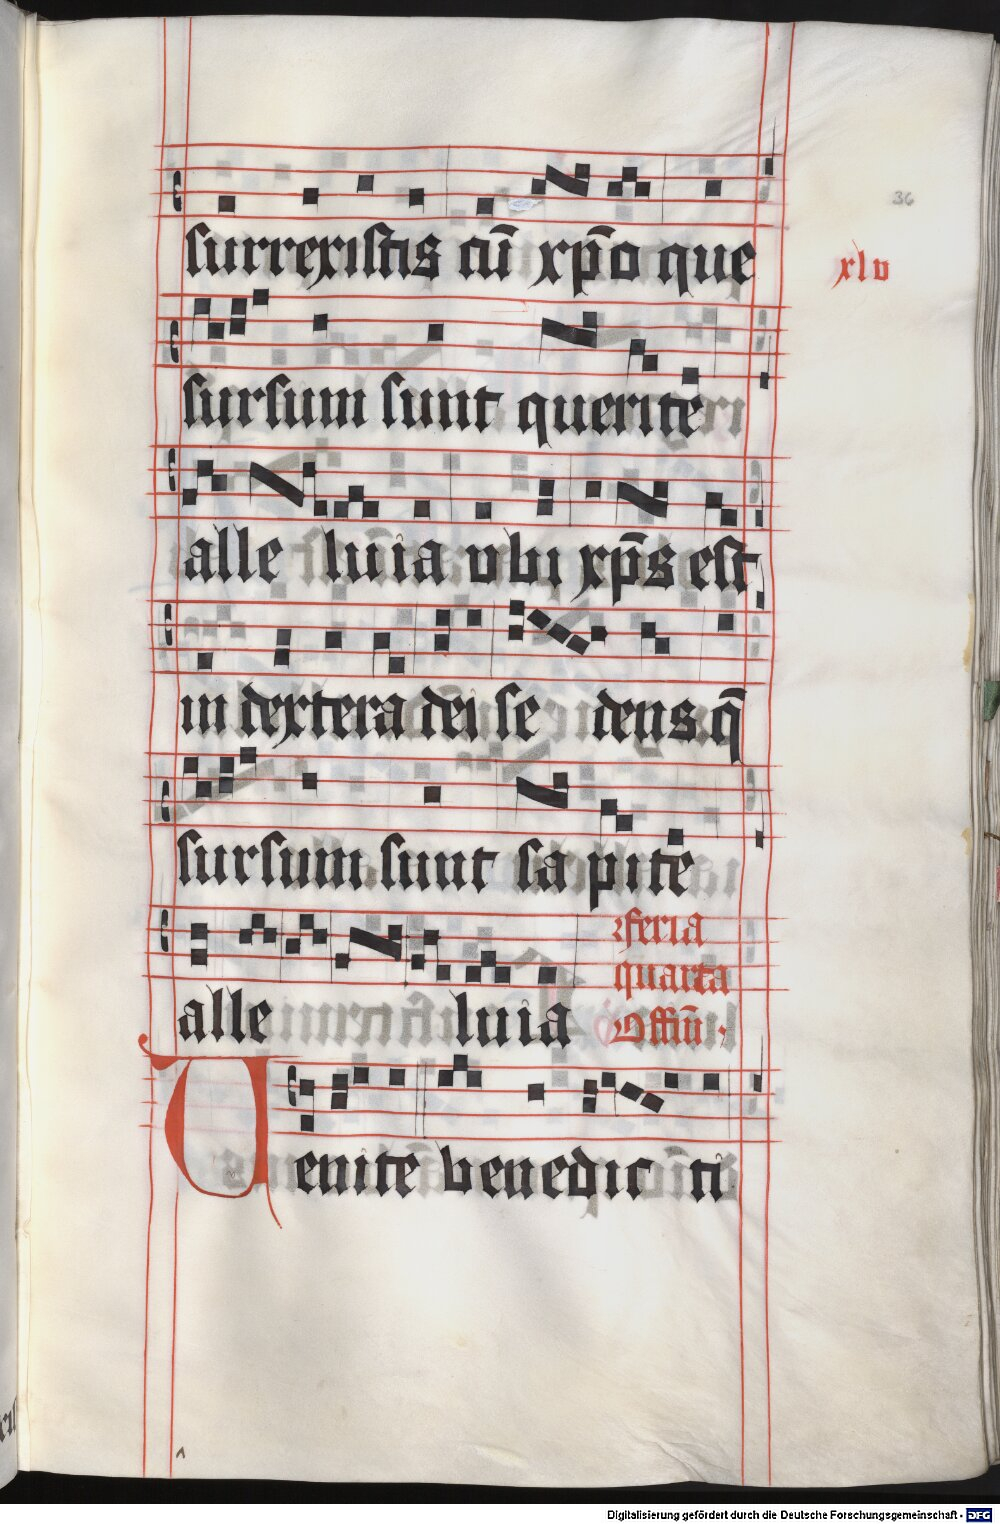 36
surrexistis cū xp̄o que
xlv
sursum sunt querite
alle luia vbi xp̄s est
in dextera dei se dens q̄
sursum sunt sa pite
feria
quarta
alle luia
Offm̄
Uenite benedic ti
Digitalisierung gefördert durch die Deutsche Forschungsgemeinschaft - DFG